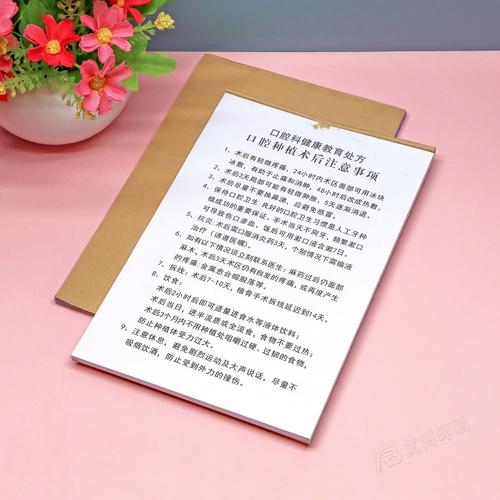 口腔科健康教育处方
口腔种植术后注意事项
1、术后有轻微疼痛，24小时内术区面部可用冰块
冰敷，有助于止痛和消肿，48小时后改成热敷。
2、术后3天局部可能有轻微肿胀，5天逐渐消退。
3、术后尽量不要擤鼻涕，应避免感冒。
4、保持口腔卫生：良好的口腔卫生习惯是人工牙种
植成功的重要保证，手术当天不刷牙，频繁漱口
可导致伤口渗血，饭后可用漱口液含漱7日。
5、抗炎：术后需口服消炎药3天，个别情况下需输液
治疗（请遵医嘱）。
6、如有以下情况须立刻联系医生：麻药过后仍面部
麻木，术后3天术区仍有自发的疼痛，或再度产生
的疼痛；金属愈合帽脱落等。
7、拆线：术后7-10天，植骨手术拆线延迟到14天。
8、饮食：
术后2小时后即可适量进食水等液体饮料；
术后当日，进半流质或全流食，食物不要过热；
术后3个月内不用种植处咀嚼过硬、过韧的食物，
防止种植体受力过大。
9、注意休息，避免剧烈运动及大声说话，尽量不
吸烟饮酒，防止受到外力的撞伤。
艾博印刷